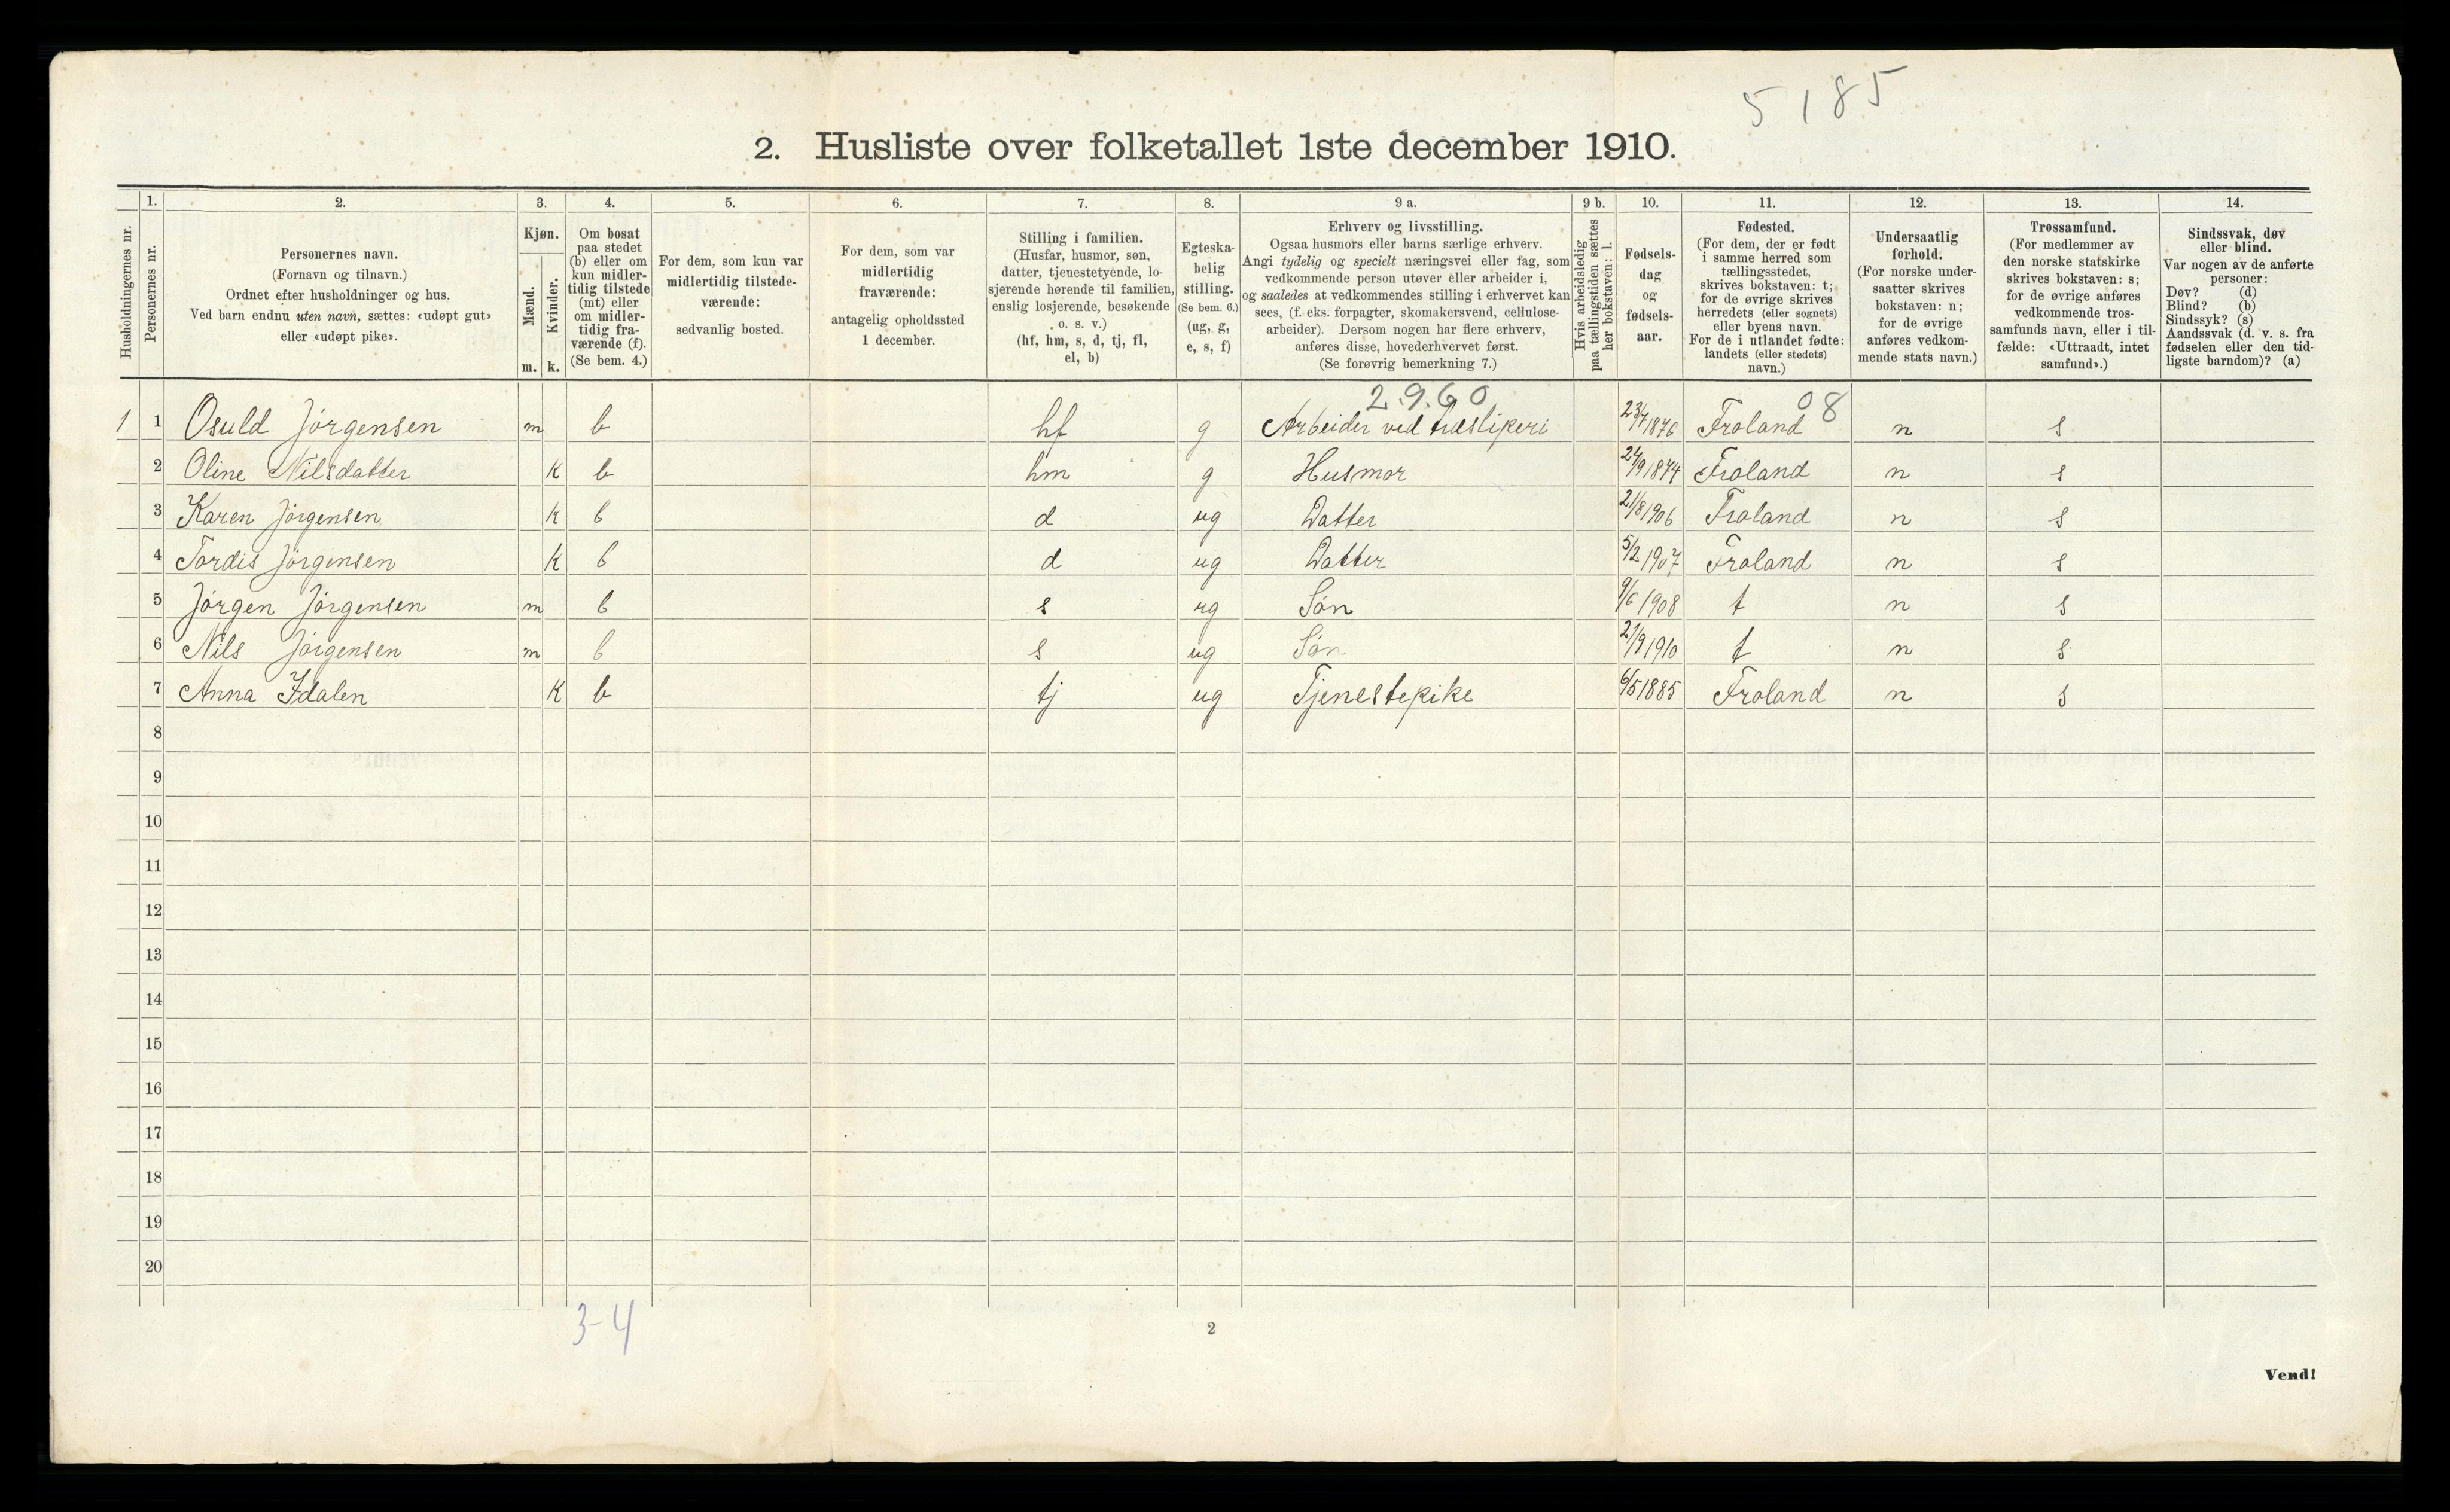 5185
2. Husliste over folketallet 1ste december 1910.
Husholdningernes nr.
1.
Personernes nr.
2.
Personernes navn.
(Fornavn og tilnavn.)
Ordnet efter husholdninger og hus.
Ved barn endnu uten navn, sættes: «udøpt gut»
eller «udøpt pike».
3.
Kjøn.
Mænd.
Kvinder.
m. k.
4.
Om bosat
paa stedet
(b) eller om
kun midler-
tidig tilstede
(mt) eller
om midler-
tidig fra-
værende (f).
(Se bem. 4.)
5.
For dem, som kun var
midlertidig tilstede-
værende:
sedvanlig bosted.
6.
For dem, som var
midlertidig
fraværende:
antagelig opholdssted
1 december.
7.
Stilling i familien.
(Husfar, husmor, søn,
datter, tjenestetyende, lo-
sjerende hørende til familien,
enslig losjerende, besøkende
o. s. v.)
(hf, hm, s, d, tj, fl,
el, b)
8.
Egteska-
belig
stilling.
(Se bem. 6.)
(ug, g,
e, s, f)
9 a.
Erhverv og livsstilling.
Ogsaa husmors eller barns særlige erhverv.
Angi tydelig og specielt næringsvei eller fag, som
vedkommende person utøver eller arbeider i,
og saaledes at vedkommendes stilling i erhvervet kan
sees, (f. eks. forpagter, skomakersvend, cellulose-
arbeider). Dersom nogen har flere erhverv,
anføres disse, hovederhvervet først.
(Se forøvrig bemerkning 7.)
9 b.
Hvis arbeidsledig
paa tællingstiden sættes
her bokstaven: l.
10.
Fødsels-
dag
og
fødsels-
aar.
11.
Fødested.
(For dem, der er født
i samme herred som
tællingsstedet,
skrives bokstaven: t;
for de øvrige skrives
herredets (eller sognets)
eller byens navn.
For de i utlandet fødte:
landets (eller stedets)
navn.)
12.
Undersaatlig
forhold.
(For norske under-
saatter skrives
bokstaven: n;
for de øvrige
anføres vedkom-
mende stats navn.)
13.
Trossamfund.
(For medlemmer av
den norske statskirke
skrives bokstaven: s;
for de øvrige anføres
vedkommende tros-
samfunds navn, eller i til-
fælde: «Uttraadt, intet
samfund».)
14.
Sindssvak, døv
eller blind.
Var nogen av de anførte
personer:
Døv? (d)
Blind? (b)
Sindssyk? (s)
Aandssvak (d. v. s. fra
fødselen eller den tid-
ligste barndom)? (a)
2.9.60 08
1 1 Osuld Jörgensen m b hf g Arbeider ved træsliperi 23/7 1876 Froland n s
2 Oline Nilsdatter K b hm g Husmor 24/9 1874 Froland n s
3 Karen Jörgensen K b d ug Datter 21/8 1906 Froland n s
4 Tordis Jörgensen K b d ug Datter 5/2 1907 Froland n s
5 Jörgen Jörgensen m b s ug Sön 9/6 1908 t n s
6 Nils Jörgensen m b s ug Sön 21/9 1910 t n s
7 Anna Ydalen K b tj ug Tjenestepike 6/5 1885 Froland n s
8
9
10
11
12
13
14
15
16
17
18
19
20
3-4
2
Vend!